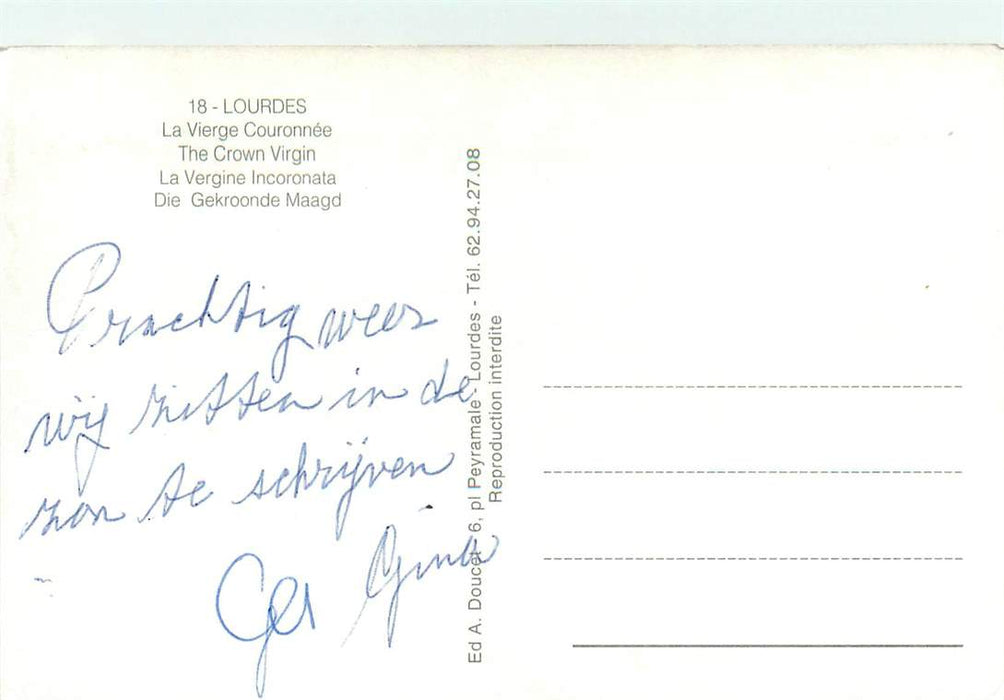 18 - LOURDES
La Vierge Couronnée
The Crown Virgin
La Vergine Incoronata
Die Gekroonde Maagd
Prachtig weer
wij zitten in de
zon te schrijven
Ger Gina
Ed A. Doucet 6, pl Peyramale Lourdes - Tél. 62.94.27.08
Reproduction interdite